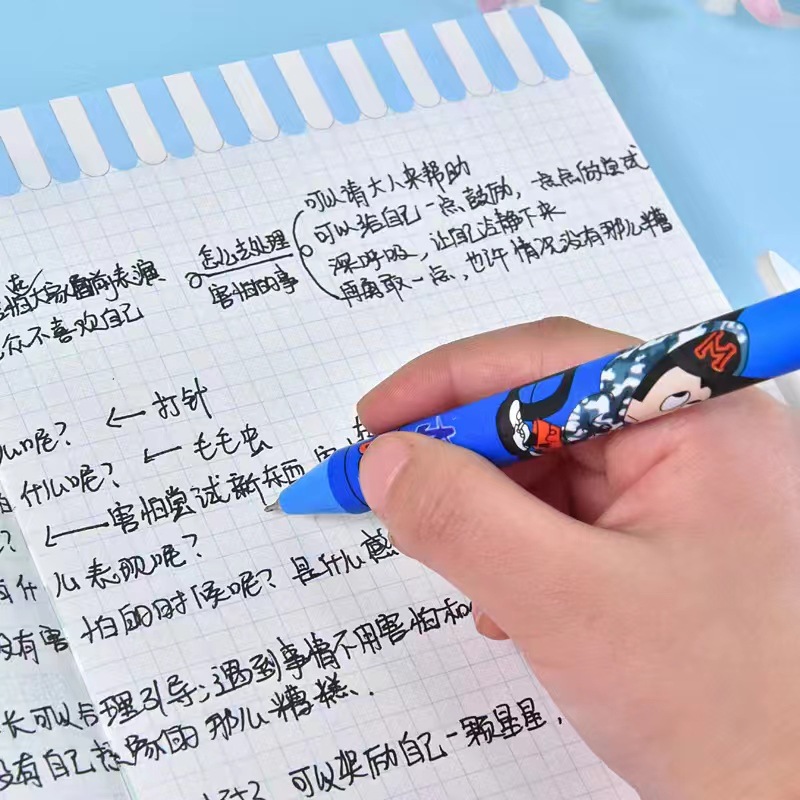 可以请大人来帮助
可以给自己一点鼓励，一点点的尝试
深呼吸，让自己冷静下来
再勇敢一点，也许情况没有那么糟
怎么去处理
害怕的事
害怕大家面前表演
众不喜欢自己
么呢？ ← 打针
什么呢？ ← 毛毛虫
？ ← 害怕尝试新东西
有什么表现呢？
没有害怕的时候呢？是什么感
长可以合理引导；遇到事情不用害怕和
没有自己想象的那么糟糕．
可以奖励自己一颗星星，
M